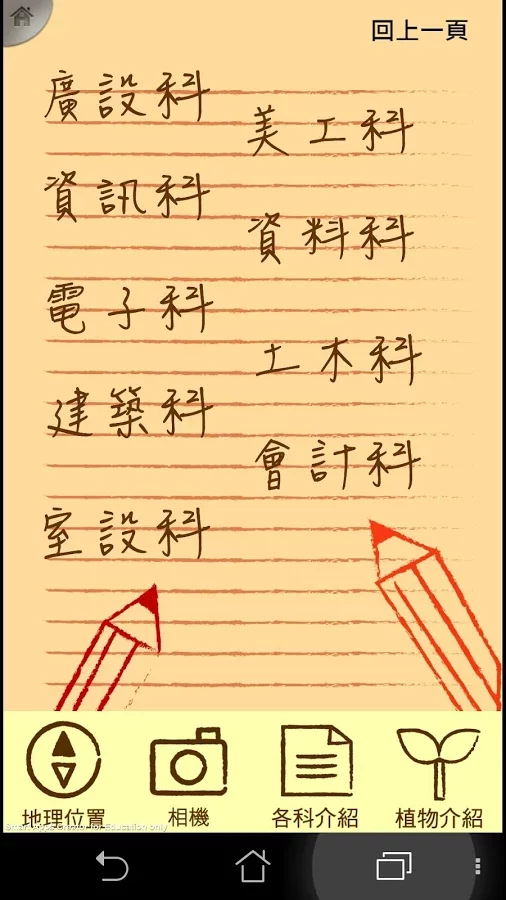 回上一頁
廣設科
美工科
資訊科
資料科
電子科
土木科
建築科
會計科
室設科
地理位置
相機
各科介紹
植物介紹
Smart Apps Creator for Education only